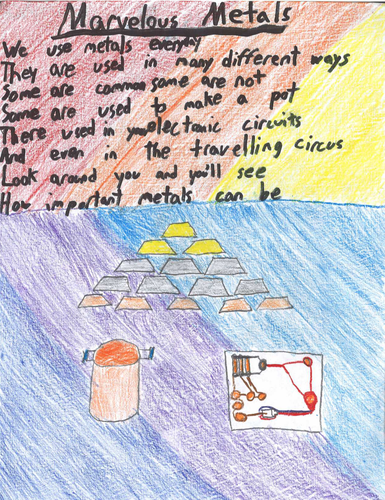 Marvelous Metals
We use metals everyday
They are used in many different ways
Some are common some are not
Some are used to make a pot
There used in electronic circuits
And even in the travelling circus
Look around you and you'll see
How important metals can be